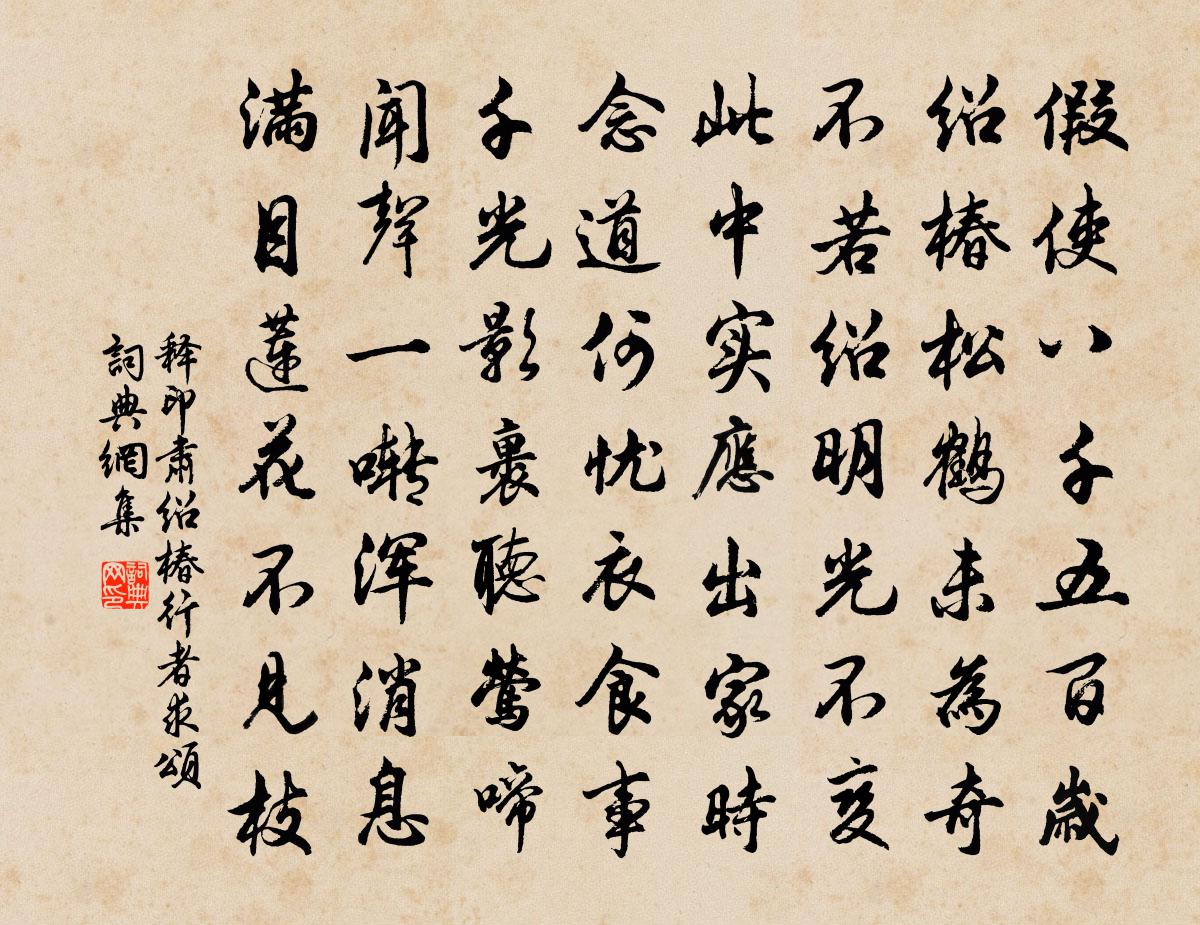 假使八千五百歲
绍椿松鶴未為奇
不若绍明光不变
此中实應出家時
念道何忧衣食事
千光影裹聽鶯啼
闻聲一啭浑消息
满目蓮花不見枝
释印肃绍椿行者求頌
詞典網集
詞典网印